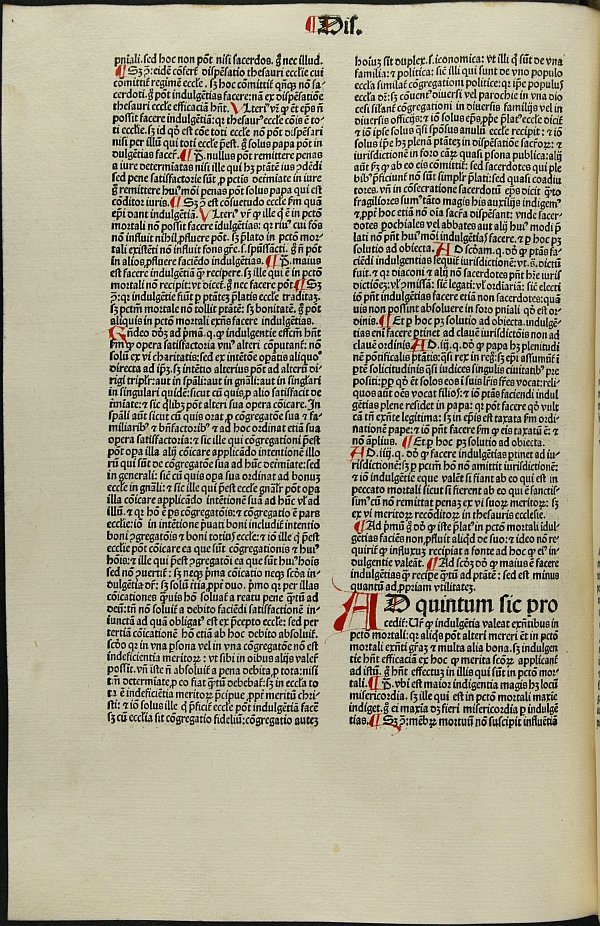 ¶ Dis.
pniali. sed hoc non pōt nisi sacerdos. g̊ nec illud.
¶ Sʒ ɔ: eidē cōferť dispēsatio thesauri ecclīe cui
comittiť regimē ecclīe. sʒ hoc comittiť
cerdoti. g̊ pōt indulgētias facere: nā ex dispēsatiōe
thesauri ecclīe efficaciā hn̄t. Ulteri᷒ vr̄ ꝙ et ep̄s n̄
possit facere indulgētiā: qꝛ thesaur᷒ ecclīe cōis ē to-
ti ecclīe. sʒ id qd̓ est cōe toti ecclīe nō pōt dispēsari
nisi per illū qui toti ecclīe p̄est. g̊ solus papa pōt in
dulgētias facer̄. ¶ P. nullus pōt remittere penas
a iure determīatas nisi ille qui hʒ ptātē ius ɔdēdi
sed pene satisfactorie sūt p̱ pctis determīate in iure
g̊ remittere hui᷒mōi penas pōt solus papa qui est
cōditor iuris. ¶ Sʒ ɔ est cōsuetudo ecclīe fm̄ quā
ep̄i dant indulgētiā. Ulteri᷒ vr̄ ꝙ ille q̇ ē in pctō
mortali nō possit facere īdulgētias: qꝛ riu᷒ cui fōs
nō influit nihil ꝓfluere pōt. sʒ p̄lato in pctō mor-
tali exn̄ti nō influit fons grē. s. spūssancti. g̊ n̄ pōt
in alios ꝓfluere faciēdo indulgētias. ¶ P. maius
est facere indulgētiā ꝙ̄ recipere. sʒ ille qui ē in pctō
mortali nō recipit: vt diceť. g̊ nec facere pōt ¶ Sʒ
ɔ: qꝛ indulgētie fiūt p̱ ptātē p̄latis ecclīe traditaʒ.
sʒ pctm̄ mortale nō tollit ptātē: sʒ bonitatē. g̊ pōt
aliquis in pctō mortali exn̄s facere indulgētias.
Rn̄deo dd̓ʒ ad p̄mā. q. ꝙ indulgentie effcm̄ hn̄t
fm̄ ꝙ opera satisfactoria vni᷒ alteri cōputanť: nō
solū ex vi charitatis: sed ex intētōe opātis aliquo᷒
directa ad ip̄ʒ. sʒ intētio alterius pōt ad alterū di-
rigi triplr̄: aut in sp̄ali: aut in gn̄ali: aut in singlari
in singulari quidē: sicut cū quis p̱ alio satisfacit de
ťmiate: ⁊ sic qlibʒ pōt alteri sua opera cōicare. In
sp̄ali aūt sicut cū quis orat p̱ cōgregatōe sua ⁊ fa-
miliarib᷒ ⁊ bn̄factorib᷒ ⁊ ad hoc ordinat etiā sua
opera satisfactoria: ⁊ sic ille qui cōgregationi p̄est
pōt opa illa alij cōicare applicādo intentionē illo-
rū qui sūt de cōgregatōe sua ad hūc deťmīate: sed
in generali: sic̄ cū quis opa sua ordinat ad bonuʒ
ecclīe in gn̄ali: ⁊ sic ille qui p̄est ecclīe gn̄alr̄ pōt opa
illa cōicare applicādo intētionē sua ad hūc vl̓ ad
illū. ⁊ qꝛ hō ē ps cōgregatōis: ⁊ cōgregatio ē pars
ecclīe: iō in intētione p̱uati boni includiť intentio
boni ɔgregatōis ⁊ boni toti᷒ ecclīe: ⁊ iō ille q̇ p̄est
ecclīe pōt cōicare ea que sūt cōgregationis ⁊ hui᷒
hōis: ⁊ ille qui p̄est ɔgregatōi ea que sūt hui᷒ hois
sed nō ɔuertiť: sʒ neqʒ p̄ma cōicatio neqʒ scd̓a in-
dulgētia dr̄: sʒ solū tertia
cōicationes quīs hō soluať a reatu pene quātū ad
deū: tn̄ nō soluiť a debito faciēdi satisfactionē in-
iunctā ad quā obligať est ex p̄cepto ecclīe: sed per
tertiā cōicationē hō etiā ab hoc debito absoluiť.
scd̓o qꝛ in vna psona vel in vna cōgregatōe nō est
indeficientia meritoꝝ: vt sibi in oibus alijs valeť
possit. vn̄ iste n̄ absoluiť a pena debita p̱ tota: nisi
tm̄ determineť p̱ eo fiat q̄tū debebať: sʒ in eccl̄a to-
ta ē indeficiētia meritoꝝ p̄cipue ꝓpť meritū chri-
sti: ⁊ iō solus ille q̇ p̄ficiť ecclīe pōt indulgētiā facē
sʒ cū eccl̄ia sit cōgregatio fidelium: cōgregatio auteʒ
hoīuʒ sit duplex. s. iconomica: vt illi q̇ sūt de vna
familia: ⁊ politica: sic̄ illi qui sunt de vno populo
eccl̄a simila cōgregationi politice: qꝛ ip̄e popul᷒
eccl̄a dr̄: sʒ ɔuent᷒ diuersi vel parochie in vna dio
cesi silanť cōgregationi in diuersis familijs vel in
diuersis officijs: ⁊ iō solus ep̄s ꝓprie p̄lat᷒ ecclīe dicit
⁊ iō ipse solus qsi sponsus anulū ecclīe recipit: ⁊ iō
solus ip̄e hʒ plenā ptatē in dispēsatiōe sacr̄oꝝ: ⁊
iurisdictionē in foro cāꝝ quasi psona publica: alij
aūt fm̄ ꝙ ab eo eis cōmittiť: sed sacerdotes qui ple
bib᷒ p̄ficiunť nō sūt simplr̄ p̄lati: sed quasi coadiu
tores. vn̄ in cōsecratione sacerdotū ep̄s dicit
fragiliores sum᷒ tāto magis his auxilijs indigem᷒
⁊ ꝓpť hoc etiā nō oīa sacr̄a dispēsant: vnde sacer-
dotes pochiales vel abbates aut alij hui᷒ modi p̄
lati nō pn̄t hui᷒mōi īdulgētias facere. ⁊ p̱ hoc pʒ
solutio ad obiecta. ¶ Ad scd̓am. q. dd̓ ꝙ ptās fa-
ciēdi indulgentias sequiť iurisdictionē: vt .s. dictū
fuit. ⁊ qꝛ diaconi ⁊ alij nō sacerdotes pn̄t hr̄e iuris
dictioeʒ: vl̓ ɔmissā: sic̄ legati: vl̓ ordiariā: sic̄ electi
iō pn̄t indulgētias facere etiā non sacerdotes: quā
uis non possint absoluere in foro pn̄iali qd̓ est or-
dinis. ¶ Et p̱ hoc pʒ solutio ad obiecta. indulgē-
tias enī facere ptinet ad clauē iurisdictōis non ad
clauē ordinis. Ad. iij. q. dd̓ ꝙ papa hʒ plenitudi
nē pontificalis ptatis: qsi rex in regn̄: sʒ ep̄i assumūť ī
ptē solicitudinis qsi iudices singulis ciuitatib᷒ pre
positi: ꝓpť qd̓ eť solos eos ī suis lr̄is fr̄es vocat: reli-
quos aūt oēs vocat filios: ⁊ iō ptās faciendi indul
gētias plene residet in papa: qꝛ pōt facere qd̓ vult
cā tn̄ exn̄te legitima: sʒ in ep̄is est taxata fm̄ ordi-
nationē pape: ⁊ iō pn̄t facere fm̄ ꝙ eis taxatā ē: ⁊
nō āplius. ¶ Et p̱ hoc pʒ solutio ad obiecta.
Ad. iiij. q. dd̓ ꝙ facere indulgētias ptinet ad iu-
risdictionē: sʒ p̱ pctm̄ hō nō amittit iurisdictionē:
⁊ iō indulgētie eque valēť si fiant ab eo qui est in
peccato mortali sicut si fierent ab eo qui ē sanctis-
sim᷒ cū nō remittat penaʒ ex vi suoꝝ meritoꝝ: sʒ
ex vi meritoꝝ recōditoꝝ in thesauris ecclīe.
¶ Ad p̄mū g̊ dd̓ ꝙ iste p̄lat᷒ in pctō mortali īdul
gētias faciēs non ꝓfluit aliqd̓ de suo: ⁊ ideo nō re-
quiriť ꝙ influxuʒ recipiat a fonte ad hoc ꝙ ei᷒ in-
dulgentie valeāt. ¶ Ad scd̓ʒ dd̓ ꝙ maius ē facere
indulgētias ꝙ̄ recipe q̄tū ad ptātē: sed est minus
quantū ad ꝓpriam vtilitateʒ.
AD quintum sic pro
cediť: Ur̄ ꝙ indulgētia valeat exn̄tibus in
pctō mortali: qꝛ aliqs pōt alteri mereri eť in pctō
mortali exn̄ti grāʒ ⁊ multa alia bona. sʒ indulgen
tie hn̄t efficaciā ex hoc ꝙ merita scōꝝ applicanť
ad istū. g̊ hn̄t effectuʒ in illis qui sūt in pctō mor-
tali. ¶ P. vbi est maior indigentia magis hʒ locū
misericordia. sʒ ille qui est in pctō mortali maxīe
indiget. g̊ ei maxīa dʒ fieri misericordia p̱ indulgē
tias. ¶ Sʒ ɔ: mēbrꝫ mortuū nō suscipit influētiā